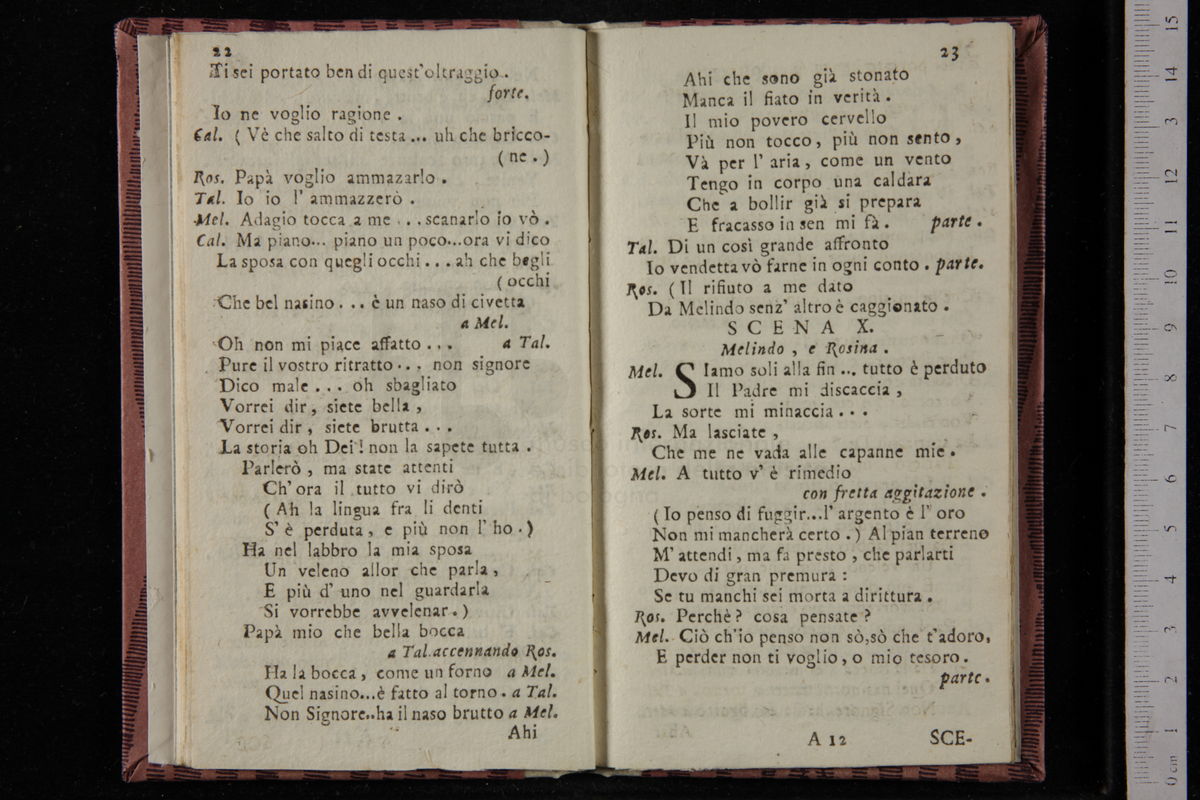 22
Ti sei portato ben di quest'oltraggio.
forte.
Io ne voglio ragione.
Cal. (Vè che salto di testa... uh che bricco-
(ne.)
Ros. Papà voglio ammazarlo.
Tal. Io io l'ammazzerò.
Mel. Adagio tocca a me... scanarlo io vò.
Cal. Ma piano... piano un poco...ora vi dico
La sposa con quegli occhi... ah che begli
(occhi
Che bel nasino... è un naso di civetta
a Mel.
Oh non mi piace affatto... a Tal.
Pure il vostro ritratto... non signore
Dico male... oh sbagliato
Vorrei dir, siete bella,
Vorrei dir, siete brutta...
La storia oh Dei! non la sapete tutta.
Parlerò, ma state attenti
Ch'ora il tutto vi dirò
(Ah la lingua fra li denti
S'è perduta, e più non l'ho.)
Ha nel labbro la mia sposa
Un veleno allor che parla,
E più d'uno nel guardarla
Si vorrebbe avvelenar.)
Papà mio che bella bocca
a Tal. accennando Ros.
Ha la bocca, come un forno a Mel.
Quel nasino...è fatto al torno. a Tal.
Non Signore..ha il naso brutto a Mel.
Ahi
23
Ahi che sono già stonato
Manca il fiato in verità.
Il mio povero cervello
Più non tocco, più non sento,
Và per l'aria, come un vento
Tengo in corpo una caldara
Che a bollir già si prepara
E fracasso in sen mi fà. parte.
Tal. Di un così grande affronto
Io vendetta vò farne in ogni conto. parte.
Ros. (Il rifiuto a me dato
Da Melindo senz'altro è caggionato.
SCENA X.
Melindo, e Rosina.
Mel. SIamo soli alla fin... tutto è perduto
Il Padre mi discaccia,
La sorte mi minaccia...
Ros. Ma lasciate,
Che me ne vada alle capanne mie.
Mel. A tutto v'è rimedio
con fretta aggitazione.
(Io penso di fuggir...l'argento è l'oro
Non mi mancherà certo.) Al pian terreno
M'attendi, ma fa presto, che parlarti
Devo di gran premura:
Se tu manchi sei morta a dirittura.
Ros. Perchè? cosa pensate?
Mel. Ciò ch'io penso non sò,sò che t'adoro,
E perder non ti voglio, o mio tesoro.
parte.
A 12 SCE-
0 cm 1 2 3 4 5 6 7 8 9 10 11 12 3 14 15